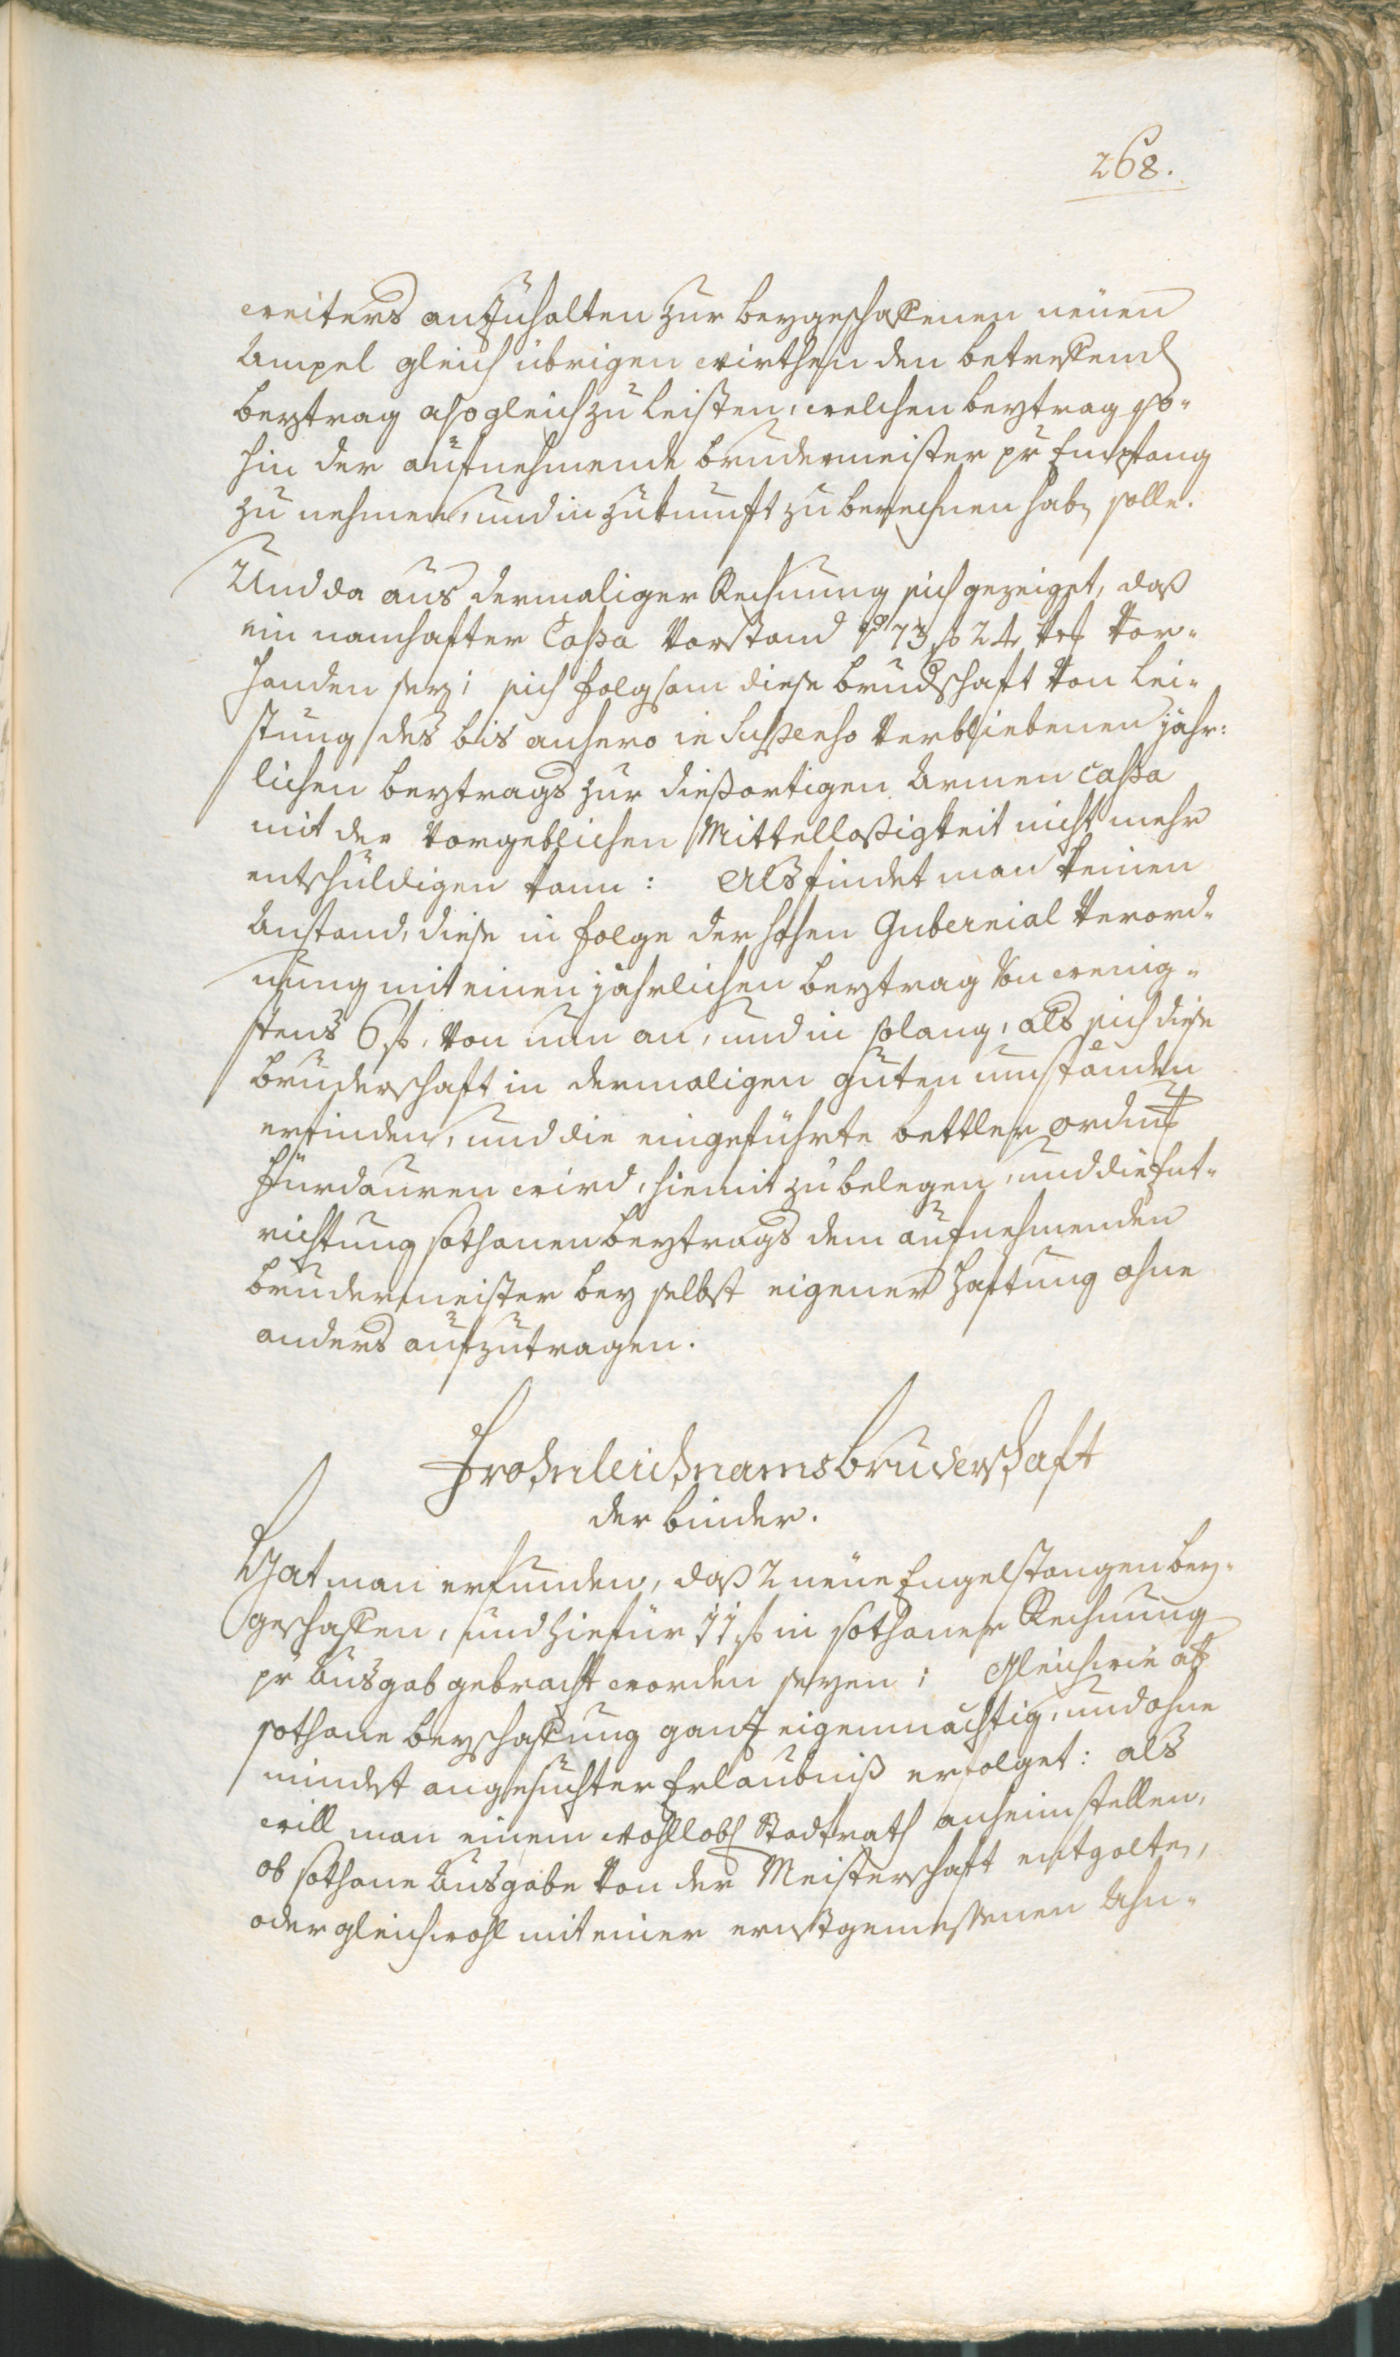 268.
weiters anzuhalten zur beygeschaffenen neuen
Ampel gleich übrigen wirthen den betreffend
beytrag also gleich zu leisten, welchen beytrag so-
hin der aufnehmende brudermeister pr Empfang
zu nehmen, und in zukunft zu berechnen habe solle.
Und da aus dermaliger Rechnung sich gezeiget, daß
ein namhafter Cassa Vorstand 73 f 24 Vor-
handen sey; sich folgsam diese brudschaft Von Lei-
stung des bis anhero in Suspenso Verbliebenen jähr:
lichen beytrags zur dießortigen Armen Cassa
mit der Vorgeblichen Mittelloßigkeit nicht mehr
entschuldigen kann: Als findet man keinen
Anstand, diese in folge der hohen Gubernial Verord-
nung mit einen jährlichen beytrag Von wenig-
stens 6 f. Von nun an, und in solang, als sich diese
bruderschaft in dermaligen guten umständen
erfinden, und die eingeführte bettler ordnung
fürdauren wird, hiemit zu belegen, und die Ent-
richtung sothanen beytrags dem aufnehmenden
brudermeister bey selbst eigener Haftung ohne
anders aufzutragen.
Frohnleichnamsbruderschaft
der binder.
Hat man erfunden, daß 2 neue Engelstangen bey-
geschaffen, und hiefür 11 f in sothaner Rechnung
pr Ausgab gebracht worden seyen; Gleichwie ab
sothane beyschaffung ganz eigenmächtig, und ohne
mindest angesuchter Erlaubniß erfolget: als
will man einem wohllobl Stadtrath anheimstellen,
ob sothane Ausgabe Von der Meisterschaft entgolten,
oder gleichwohl mit einer ernstgemessenen Ahn-